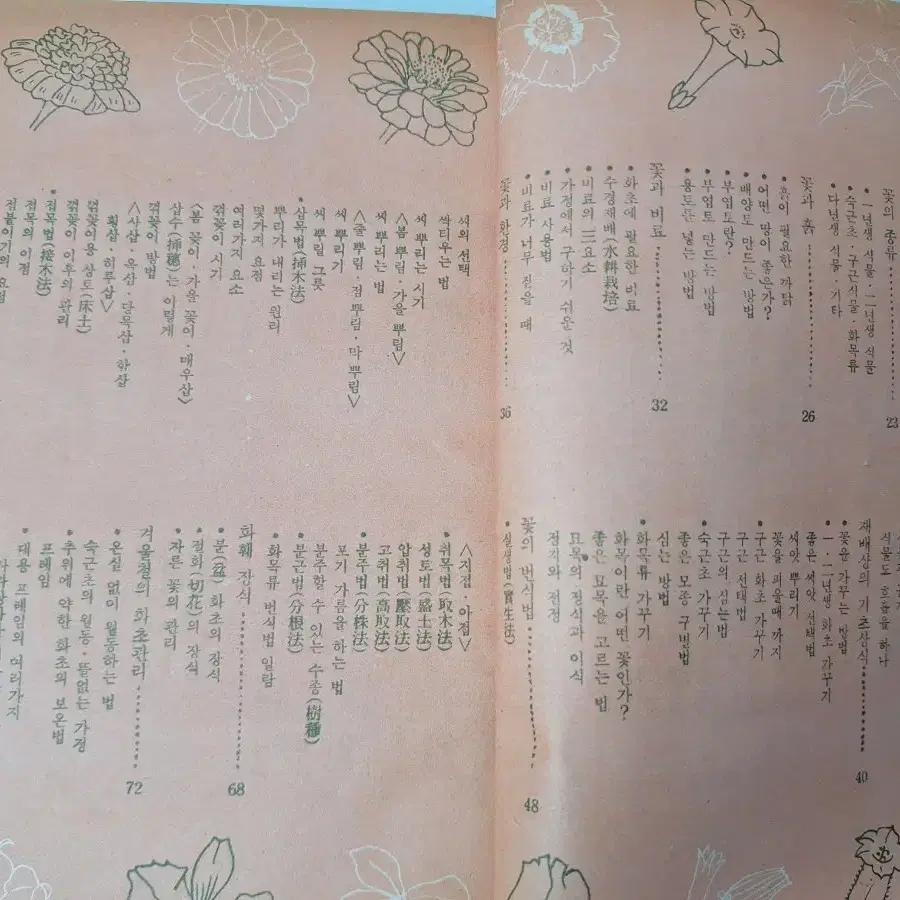 꽃의 종류 23
• 一년생 식물·二년생 식물
• 숙근초·구근식물·화목류
• 다년생 식물·기타
꽃과 흙 26
• 흙이 필요한 까닭
• 어떤 땅이 좋은가?
• 배양토 만드는 방법
• 부엽토란?
• 부엽토 만드는 방법
• 용토를 넣는 방법
꽃과 비료 32
• 화초에 필요한 비료
• 수경재배(水耕栽培)
• 비료의 三요소
• 가정에서 구하기 쉬운 것
• 비료 사용법
• 비료가 너무 짙을 때
꽃과 환경 36
식물도 호흡을 하나
재배상의 기초상식 40
• 꽃을 가꾸는 방법
• 一·二년생 화초 가꾸기
좋은 씨앗 선택법
씨앗 뿌리기
꽃을 피울때 까지
• 구근 화초 가꾸기
구근 선택법
구근의 심는법
• 숙근초 가꾸기
좋은 모종 구별법
심는 방법
• 화목류 가꾸기
화목이란 어떤 꽃인가?
좋은 묘목을 고르는 법
묘목의 정식과 이식
정지와 전정
꽃의 번식법 48
• 실생법(實生法)
씨의 선택
싹티우는 법
씨 뿌리는 시기
<봄 뿌림·가을 뿌림>
씨 뿌리는 법
<줄 뿌림·점뿌림·막 뿌림>
씨 뿌리기
씨 뿌릴 그릇
• 삽목법(挿木法)
뿌리가 내리는 원리
몇가지 요점
여러가지 요소
꺾꽂이 시기
<봄 꽂이·가을 꽂이·매우삽>
삽수(挿穗)는 이렇게
꺾꽂이 방법
<사삽·옥삽·당목삽·화삽
횡삽 히루삽>
꺾꽂이용 상토(床土)
꺾꽂이 이후의 관리
• 접목법(接木法)
접목의 이점
접붙이기의 요점
<지접·아접>
• 취목법(取木法)
성토법(盛土法)
압취법(壓取法)
고취법(高取法)
• 분주법(分株法)
포기 가름을 하는 법
분주할 수 있는 수종(樹種)
• 분근법(分根法)
• 화목류 번식법 일람
화훼 장식 68
• 분(盆)화초의 장식
• 절화(切花)의 장식
• 자른 꽃의 관리
겨울철의 화초관리 72
• 온실 없이 월동하는 법
숙근초의 월동·뜰없는 가정
• 추위에 약한 화초의 보온법
• 프레임
• 대용 프레임의 여러가지